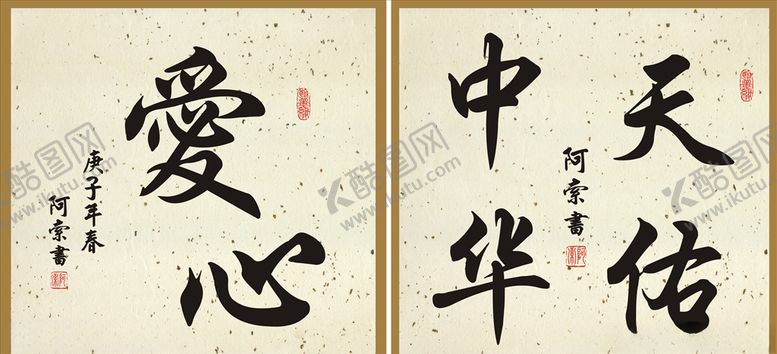 愛心
庚子年春
阿索書
天佑
中华
阿索書
酷图网
www.ikutu.com
酷图网
www.ikutu.com
酷图网
www.ikutu.com
酷图网
www.ikutu.com